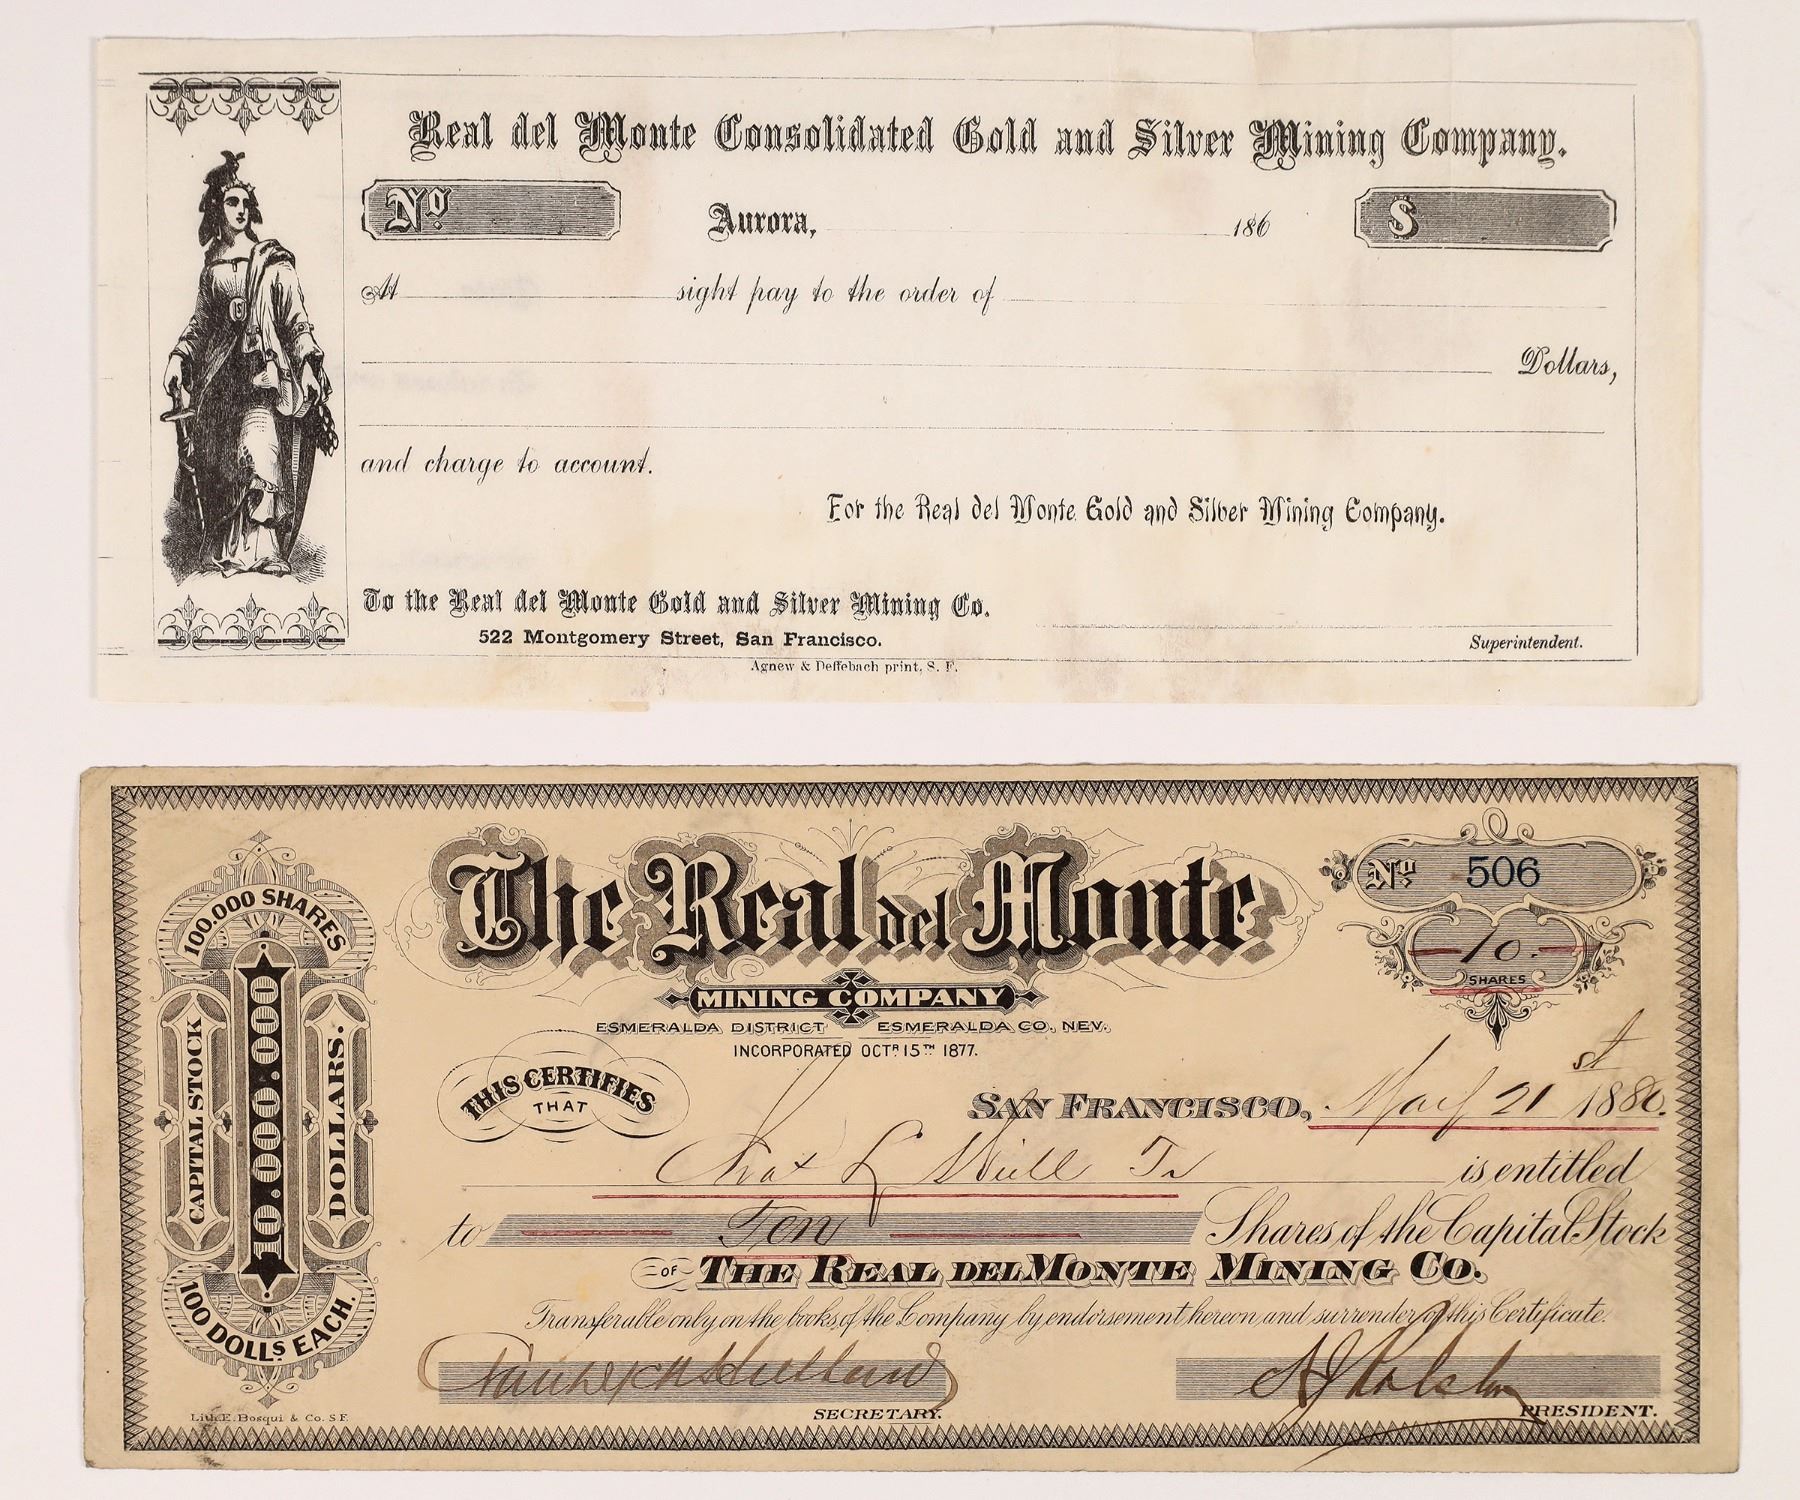 Real del Monte Consolidated Gold and Silver Mining Company.
No. $
Aurora, 186
At sight pay to the order of
Dollars,
and charge to account.
For the Real del Monte Gold and Silver Mining Company.
To the Real del Monte Gold and Silver Mining Co.
522 Montgomery Street, San Francisco.
Superintendent.
Agnew & Deffebach print, S. F.
The Real del Monte
MINING COMPANY
ESMERALDA DISTRICT ESMERALDA CO. NEV.
INCORPORATED OCTR 15TH 1877.
No. 506
10
SHARES
100.000 SHARES
CAPITAL STOCK
10.000.000
DOLLARS.
100 DOLLS EACH.
THIS CERTIFIES
THAT
SAN FRANCISCO, May 21st 1880.
Chas L is entitled
to Ten Shares of the Capital Stock
OF THE REAL DEL MONTE MINING CO.
Transferable only on the books of the Company by endorsement hereon and surrender of this Certificate.
SECRETARY.
PRESIDENT.
Lith. E. Bosqui & Co. S.F.